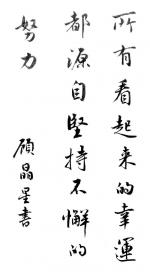 所有看起来的幸運
都源自堅持不懈的
努力
顾晶星書